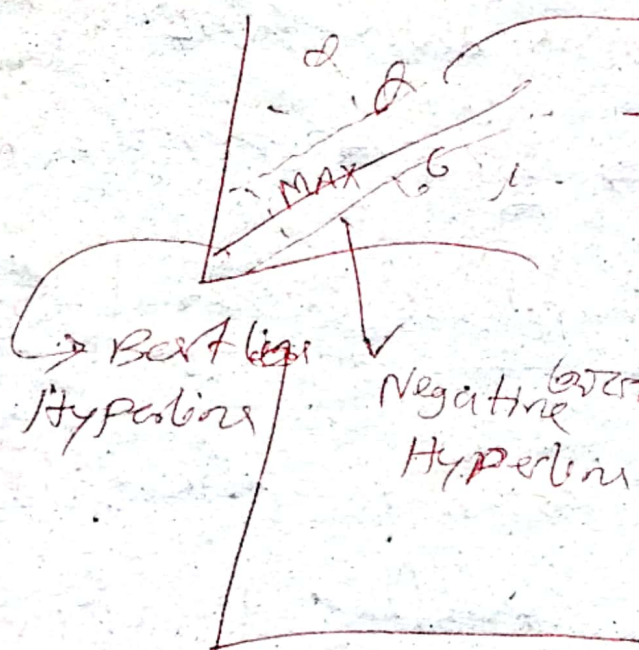 MAX
Best line
Hyperline
Negative
Hyperline